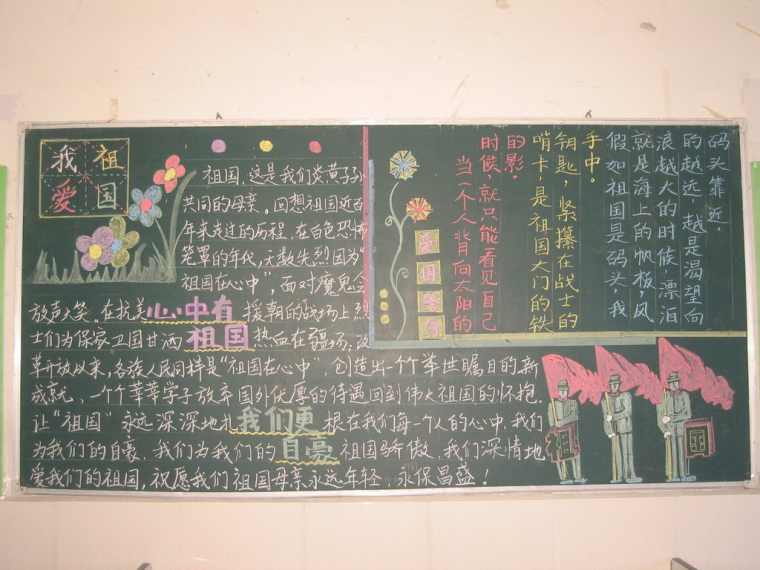 我 祖
爱 国
祖国,这是我们炎黄子孙
共同的母亲。回想祖国近百
年来走过的历程,在白色恐怖
笼罩的年代,无数先烈因为"
祖国在心中",面对魔鬼会
放声大笑。在抗美心中有援朝的战场上烈
士们为保家卫国甘洒祖国热血在疆场,改
革开放以来,各族人民同样是"祖国在心中",创造出一个个举世瞩目的新
成就,一个个莘莘学子放弃国外优厚的待遇回到伟大祖国的怀抱。
让"祖国"永远深深地扎我们更根在我们每一个人的心中,我们
为我们的自豪、我们为我们的自豪祖国骄傲、我们深情地
爱我们的祖国,祝愿我们祖国母亲永远年轻、永保昌盛!
当一个人背向太阳的
时候,就只能看见自己
的影。
哨卡,是祖国大门的铁
钥匙,紧攥在战士的
手中。
假如祖国是码头,我
就是海上的帆板,风
浪越大的时候,漂泊
的越远,越是渴望向
码头靠近。